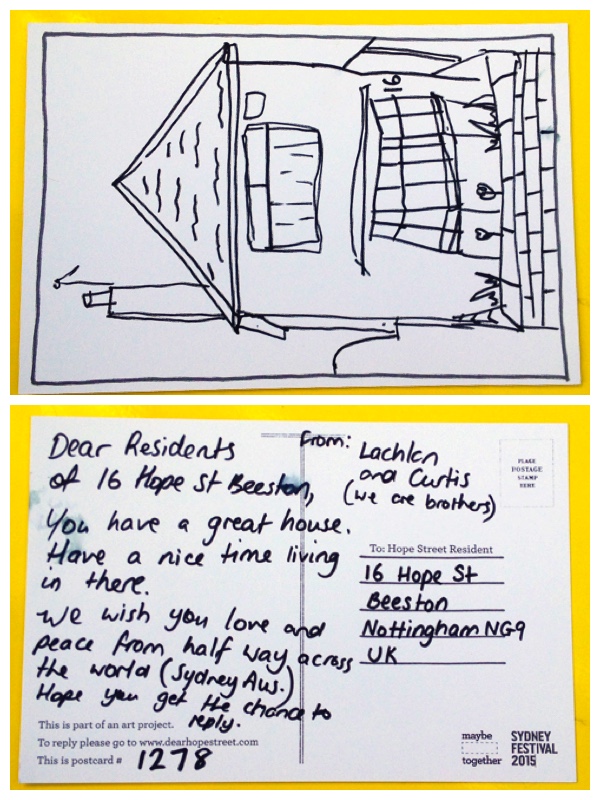 16
Dear Residents
of 16 Hope St Beeston,
You have a great house.
Have a nice time living
in there.
We wish you love and
peace from half way across
the world (Sydney Aus.)
Hope you get the chance to
reply.
This is part of an art project.
To reply please go to www.dearhopestreet.com
This is postcard # 1278
From: Lachlan
and Curtis
(we are brothers)
PLACE
POSTAGE
STAMP
HERE
To: Hope Street Resident
16 Hope St
Beeston
Nottingham NG9
UK
maybe
together
SYDNEY
FESTIVAL
2015